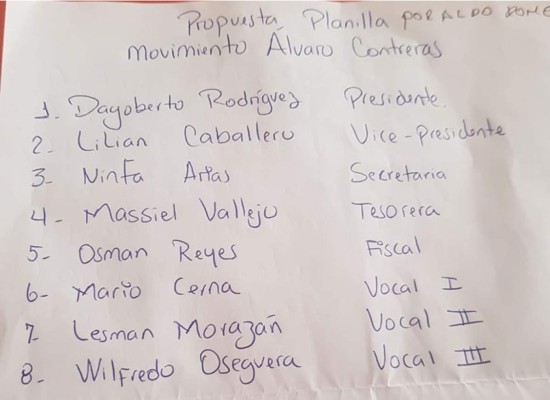 Propuesta Planilla POR ALDO
Movimiento Álvaro Contreras
1. Dagoberto Rodríguez Presidente.
2. Lilian Caballero Vice-presidente
3- Ninfa Arias Secretaria
4- Massiel Vallejo Tesorera
5- Osman Reyes Fiscal
6- Mario Cerna Vocal I
7. Lesman Morazán Vocal II
8- Wilfredo Oseguera Vocal III